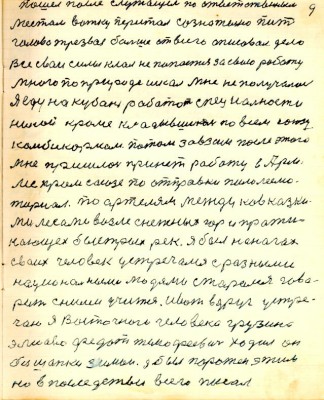 9
пошел после служащим по ответственным
местам водку перестал сознательно пить
голова трезвая больше от всего описовал дело
все сваи силы клал не попатился за сваю работу
много по природе искал мне не получалося
я еду на кубань работой специалности
никой кроме кладавшика по всему союзу
комбикормам. потом завзам после этого
мне пришлось принеть работу в Арм.
лес хром союзе по отправки пило лесмо-
териал. по артелям между кавказки-
ми лесами возле снежных гор и проти-
кающех быстрых рек. я был на ногах
сваих человек устречался с разными
национальными людями старался гова-
рить с ними учится. и вот вдруг устре-
чал я Восточного человека грузина
федот тимофеевич ходил он
без шапки зимом. я был поражен этим
но в последствии всего писал